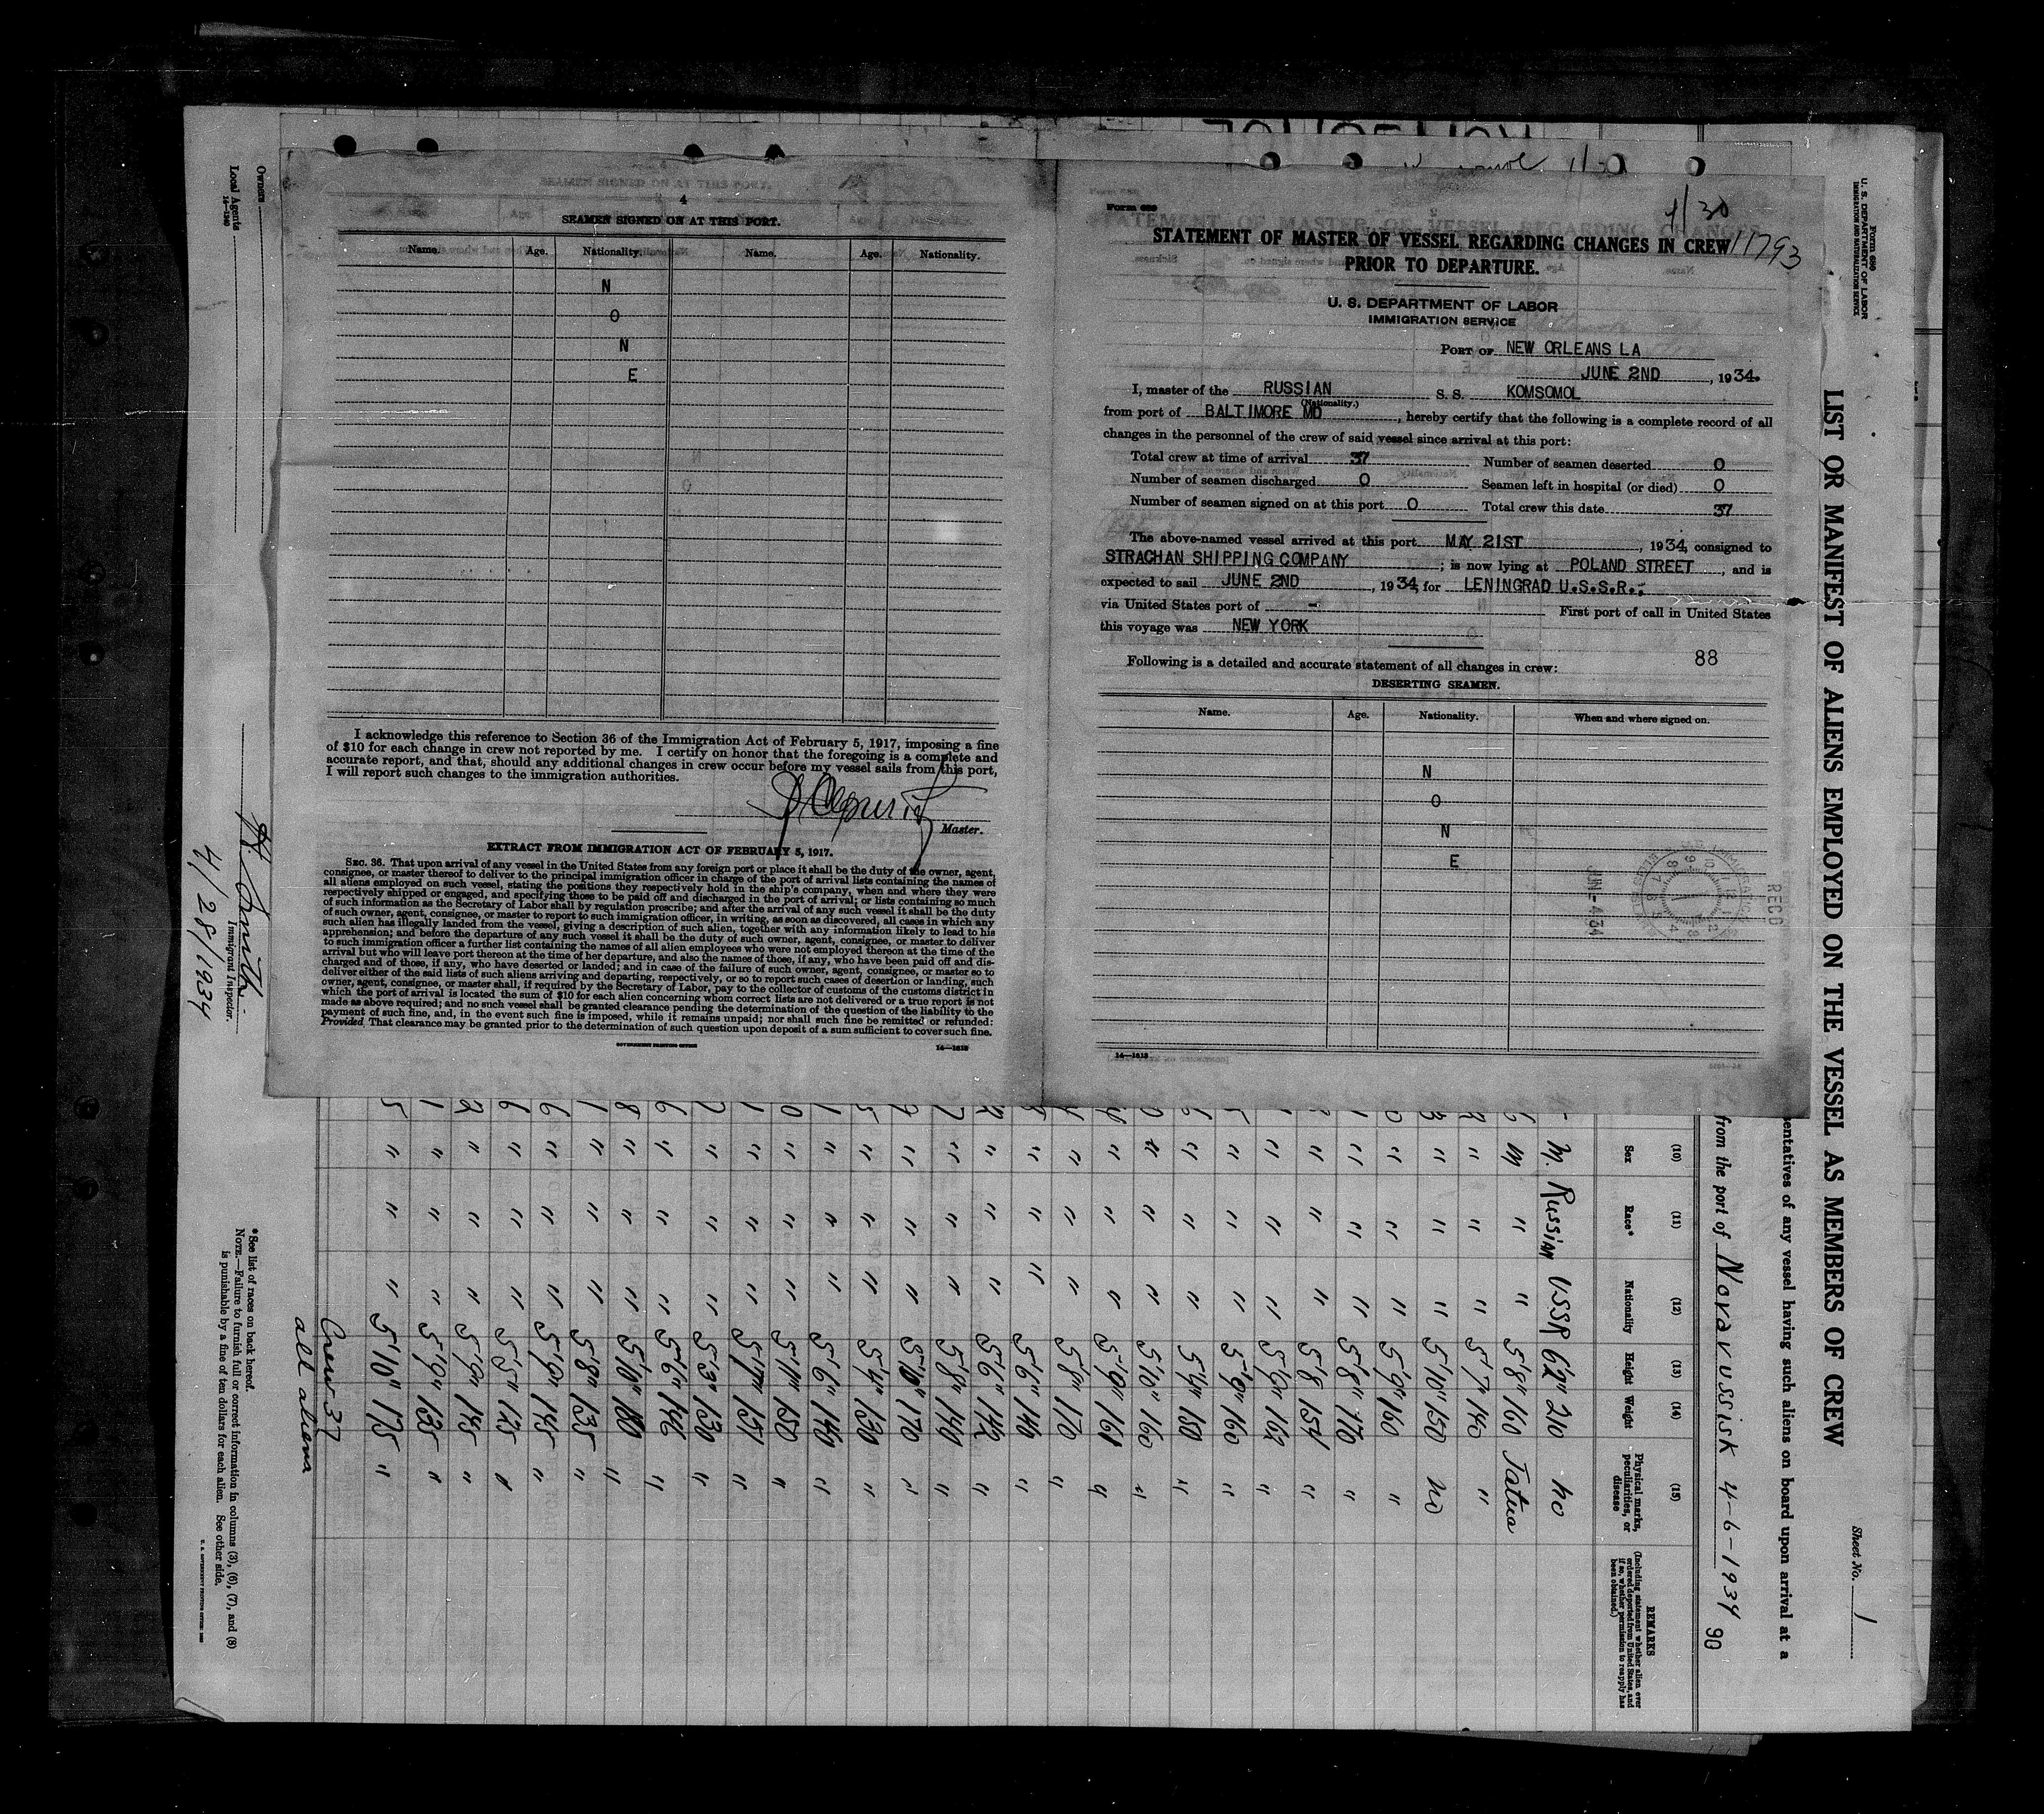 4
SEAMEN SIGNED ON AT THIS PORT.
Name. Age. Nationality. Name. Age. Nationality.
N
O
N
E
I acknowledge this reference to Section 36 of the Immigration Act of February 5, 1917, imposing a fine
of $10 for each change in crew not reported by me. I certify on honor that the foregoing is a complete and
accurate report, and that, should any additional changes in crew occur before my vessel sails from this port,
I will report such changes to the immigration authorities.
Master.
EXTRACT FROM IMMIGRATION ACT OF FEBRUARY 5, 1917.
SEC. 36. That upon arrival of any vessel in the United States from any foreign port or place it shall be the duty of the owner, agent,
consignee, or master thereof to deliver to the principal immigration officer in charge of the port of arrival lists containing the names of
all aliens employed on such vessel, stating the positions they respectively hold in the ship's company, when and where they were
respectively shipped or engaged, and specifying those to be paid off and discharged in the port of arrival; or lists containing so much
of such information as the Secretary of Labor shall by regulation prescribe; and after the arrival of any such vessel it shall be the duty
of such owner, agent, consignee, or master to report to such immigration officer, in writing, as soon as discovered, all cases in which any
such alien has illegally landed from the vessel, giving a description of such alien, together with any information likely to lead to his
apprehension; and before the departure of any such vessel it shall be the duty of such owner, agent, consignee, or master to deliver
to such immigration officer a further list containing the names of all alien employees who were not employed thereon at the time of the
arrival but who will leave port thereon at the time of her departure, and also the names of those, if any, who have been paid off and dis-
charged and of those, if any, who have deserted or landed; and in case of the failure of such owner, agent, consignee, or master so to
deliver either of the said lists of such aliens arriving and departing, respectively, or so to report such cases of desertion or landing, such
owner, agent, consignee, or master shall, if required by the Secretary of Labor, pay to the collector of customs of the customs district in
which the port of arrival is located the sum of $10 for each alien concerning whom correct lists are not delivered or a true report is not
made as above required; and no such vessel shall be granted clearance pending the determination of the question of the liability to the
payment of such fine, and, in the event such fine is imposed, while it remains unpaid; nor shall such fine be remitted or refunded:
Provided, That clearance may be granted prior to the determination of such question upon deposit of a sum sufficient to cover such fine.
GOVERNMENT PRINTING OFFICE 14—1613
Form 689
4/30
STATEMENT OF MASTER OF VESSEL REGARDING CHANGES IN CREW 11793
PRIOR TO DEPARTURE.
U. S. DEPARTMENT OF LABOR
IMMIGRATION SERVICE
PORT OF NEW ORLEANS LA
JUNE 2ND, 1934.
I, master of the RUSSIAN S. S. KOMSOMOL
(Nationality.)
from port of BALTIMORE MD, hereby certify that the following is a complete record of all
changes in the personnel of the crew of said vessel since arrival at this port:
Total crew at time of arrival 37 Number of seamen deserted 0
Number of seamen discharged 0 Seamen left in hospital (or died) 0
Number of seamen signed on at this port 0 Total crew this date 37
The above-named vessel arrived at this port MAY 21ST, 1934, consigned to
STRACHAN SHIPPING COMPANY; is now lying at POLAND STREET, and is
expected to sail JUNE 2ND, 1934, for LENINGRAD U.S.S.R.;
via United States port of - First port of call in United States
this voyage was NEW YORK
88
Following is a detailed and accurate statement of all changes in crew:
DESERTING SEAMEN.
Name. Age. Nationality. When and where signed on.
N
O
N
E
JUN-4 34
REC'D
14—1613
Form 689
U. S. DEPARTMENT OF LABOR
IMMIGRATION AND NATURALIZATION SERVICE
LIST OR MANIFEST OF ALIENS EMPLOYED ON THE VESSEL AS MEMBERS OF CREW
Sheet No. 1
entatives of any vessel having such aliens on board upon arrival at a
from the port of Novarussisk 4-6-1934 90
(10) (11) (12) (13) (14) (15)
Sex Race* Nationality Height Weight Physical marks, peculiarities, or disease
REMARKS
(Including statement whether alien ever
ordered deported from United States, and
if so, whether permission to reapply has
been obtained.)
M. Russian USSR 6'2" 210 no
M " " 5'8" 160 Tatuo
" " " 5'7" 140 "
" " " 5'10" 150 no
" " " 5'9" 160 "
" " " 5'8" 170 "
" " " 5'8 154 "
" " " 5'9" 162 "
" " " 5'9" 160 "
" " " 5'4" 150 "
" " " 5'10" 160 "
" " " 5'9" 161 "
" " " 5'8" 170 "
" " " 5'6" 140 "
" " " 5'6" 142 "
" " " 5'8" 140 "
" " " 5'10" 170 "
" " " 5'4" 130 "
" " " 5'6" 140 "
" " " 5'11" 150 "
" " " 5'7" 151 "
" " " 5'3" 130 "
" " " 5'6" 146 "
" " " 5'10" 180 "
" " " 5'8" 135 "
" " " 5'9" 145 "
" " " 5'5" 125 "
" " " 5'9" 145 "
" " " 5'9" 135 "
" " " 5'10" 175 "
Crew 37
all aliens
*See list of races on back hereof.
NOTE.—Failure to furnish full or correct information in columns (3), (6), (7), and (8)
is punishable by a fine of ten dollars for each alien. See other side.
U. S. GOVERNMENT PRINTING OFFICE
Owners
Local Agents
14—1240
Smith
Immigrant Inspector.
4/28/1934